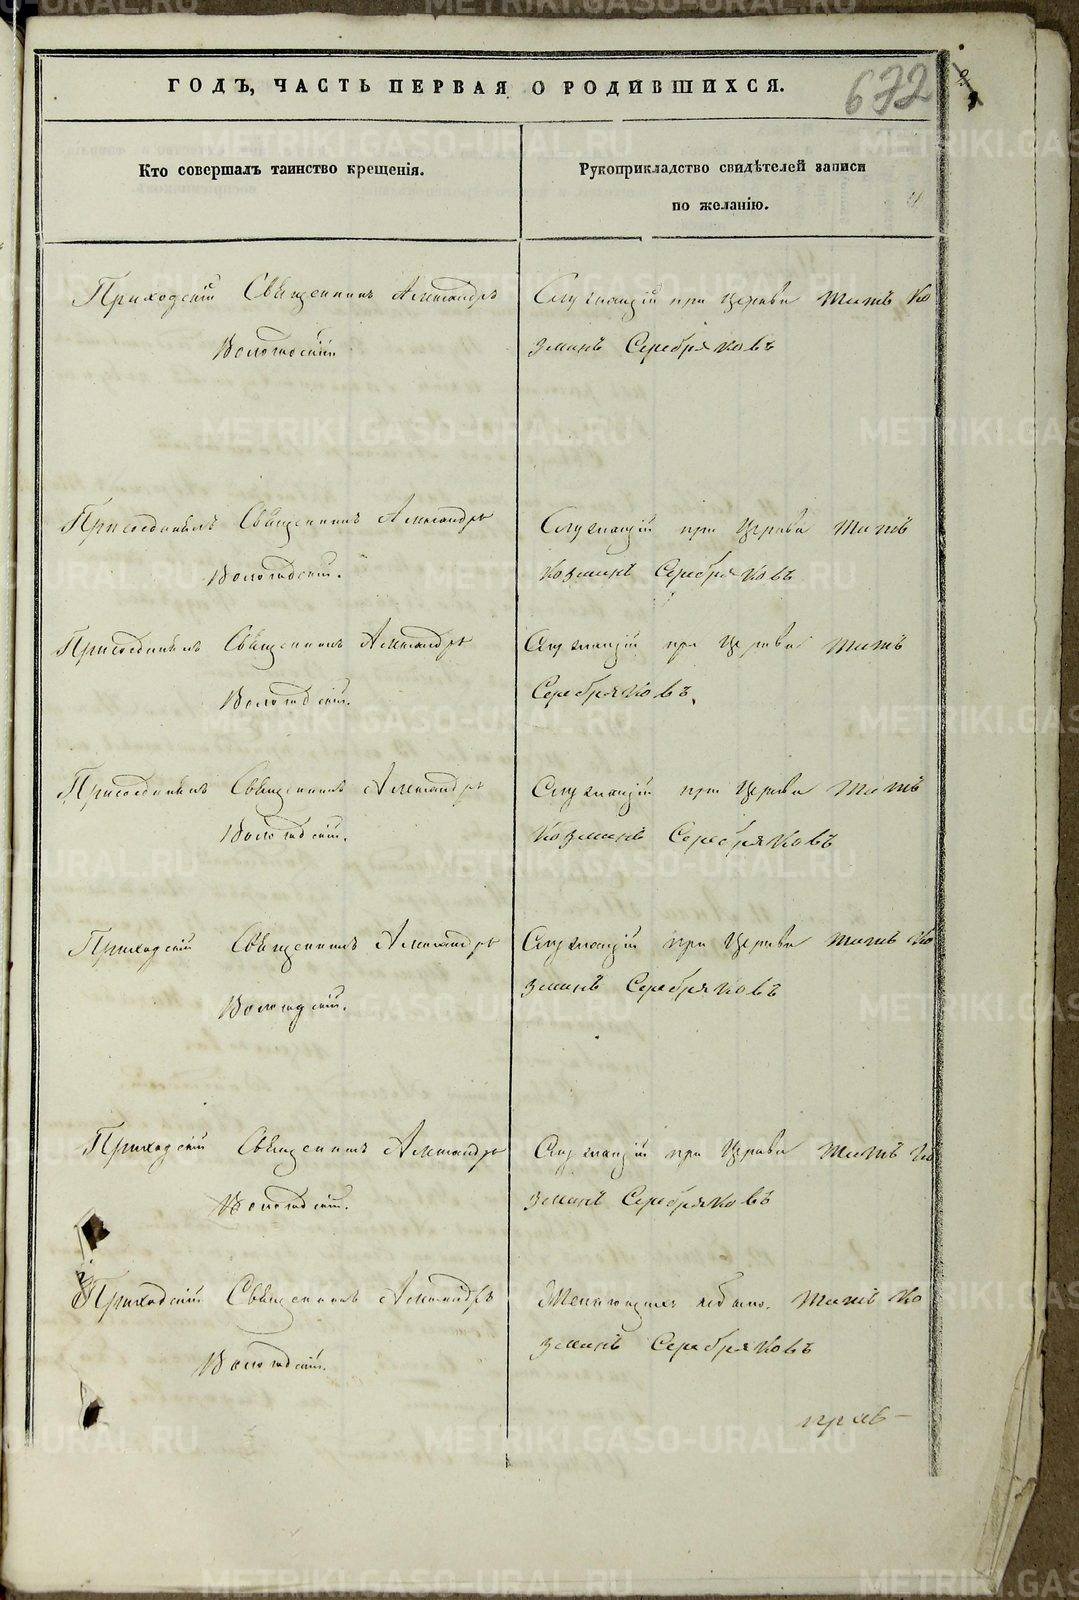 ГОДЪ, ЧАСТЬ ПЕРВАЯ О РОДИВШИХСЯ.
672
Кто совершалъ таинство крещенія.
Рукоприкладство свидѣтелей записи
по желанію.
Приходскій Священникъ Александръ
Вологодскій
Служащій при Церкви Титъ Ко
зминъ Серебряковъ
Священникъ Александръ
Вологодскій.
Служащій при Церкви Титъ
Козминъ Серебряковъ
Священникъ Александръ
Вологодскій.
Служащій при Церкви Титъ
Серебряковъ,
Священникъ Александръ
Вологодскій.
Служащій при Церкви Титъ
Козминъ Серебряковъ
Приходскій Священникъ Александръ
Вологодскій.
Служащій при Церкви Титъ Ко
зминъ Серебряковъ
Приходскій Священникъ Александръ
Вологодскій.
Служащій при Церкви Титъ Ко
зминъ Серебряковъ
Приходскій Священникъ Александръ
Вологодскій.
Титъ Ко
зминъ Серебряковъ
METRIKI.GASO-URAL.RU